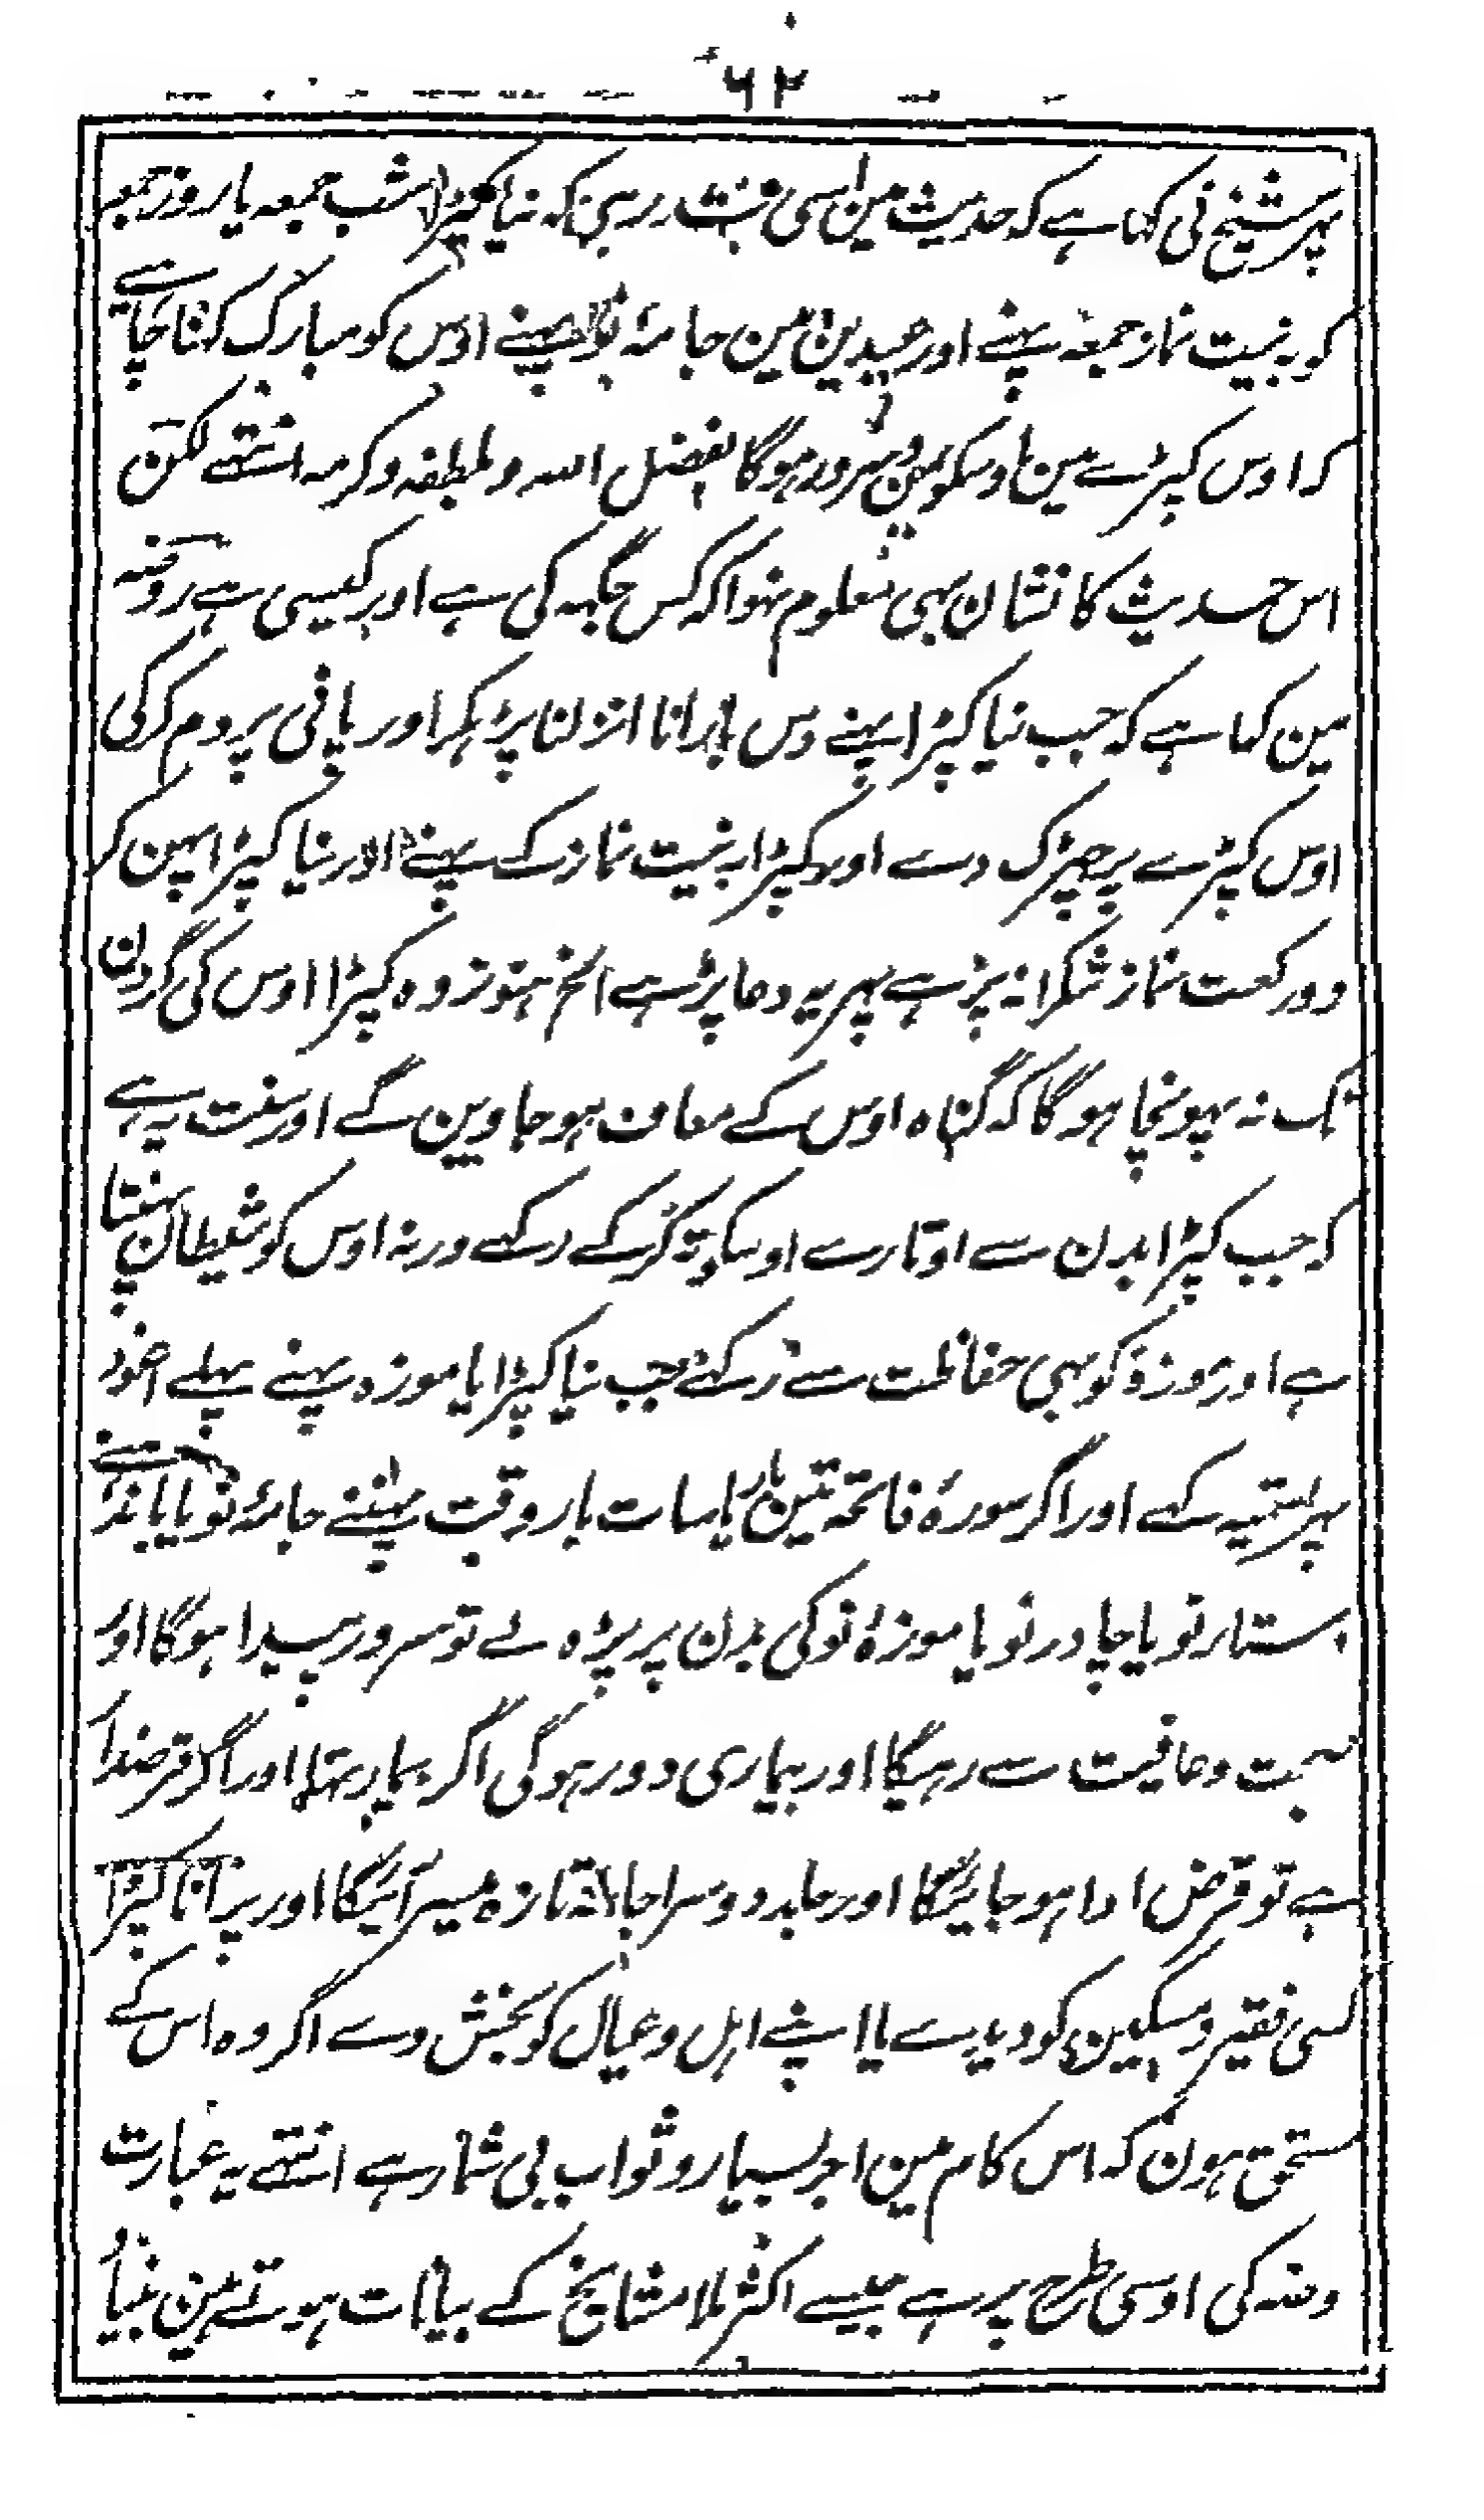 ۶۲
پہر شیخ نی کہا ہے کہ حدیث مین اسی نیت در ہی کہ نیا کپڑا شب جمعہ یا روز جمعہ
کو بہ نیت نماز جمعہ پہنے اور عیدین مین جامۂ نو پہنے اوس کو مبارک کہنا چاہئے
کہ اوس کپڑے مین اوسکو سرور ہوگا بفضل اللہ و لطفہ و کرمہ انتہے لکن
اس حدیث کا نشان بہی معلوم نہوا کہ کس جگہہ کی ہے اور کیسی ہے روضہ
مین کہا ہے کہ جب نیا کپڑا پہنے دس بار انا انزلنا پڑہکر اور پانی پر دم کرکی
اوس کپڑے پر چہڑک دے اور کپڑا بہ نیت نماز کے پہنے اور نیا کپڑا پہن کر
دو رکعت نماز شکرانہ پڑہے پہر یہ دعا پڑہے الخ ہنوز وہ کپڑا اوس کی گردن
تک نہ پہونچا ہوگا کہ گناہ اوس کے معاف ہو جاوین گے اور سنت یہ ہے
کہ جب کپڑا بدن سے اوتارے اوسکو تہ کرکے رکہے ورنہ اوس کو شیطان پہنتا
ہے اور موزہ کو بہی حفاظت سے رکہے جب نیا کپڑا یا موزہ پہنے پہلے اعوذ
پہر تسمیہ کہے اور اگر سورۂ فاتحہ تین بار یا سات بار وقت پہننے جامۂ نو یا باندہنے
دستار نو یا چادر نو یا موزۂ نو کی بدن پر پڑہ لے تو سرور پیدا ہوگا اور
صحت و عافیت سے رہیگا اور بیماری دور ہوگی اگر بیمار تہا اور اگر قرضدار
ہے تو قرض ادا ہو جائیگا اور جلد دوسرا جامہ تازہ میسر آئیگا اور پرانا کپڑا
کسی فقیر و مسکین کو دیدے یا اپنے اہل و عیال کو بخش دے اگر وہ اس کے
مستحق ہون کہ اس کام مین اجر بسیار و ثواب بی شمار ہے انتہے یہ عبارت
روضہ کی اوسی طرح پر ہے جیسے اکثر ملا مشایخ کے بیانات ہوتے ہین بنیاد